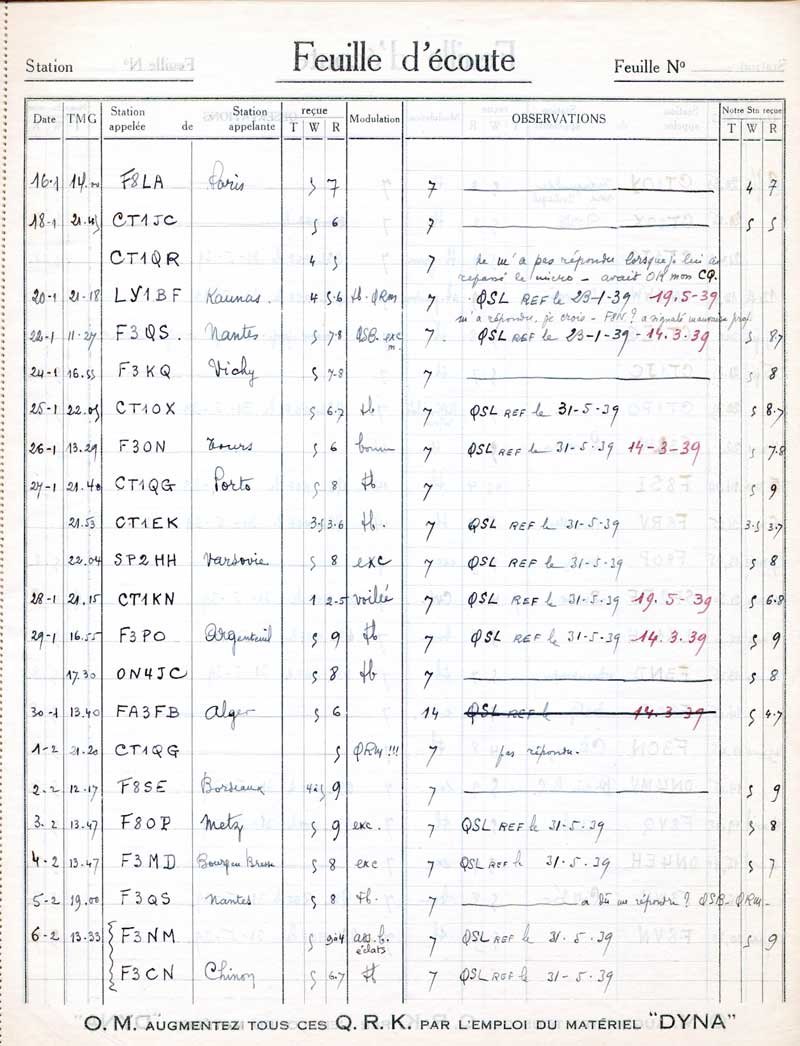 Feuille d'écoute
Station
Feuille Nº
Date TMG Station appelée de Station appelante reçue T W R Modulation OBSERVATIONS Notre Stn reçue T W R
16-1 14.00 F8LA Paris 5 7 7 4 7
18-1 21.45 CT1JC 5 6 7 5 5
CT1QR 4 5 7 ne m'a pas répondu lorsque je lui ai
repassé le micro - avait OK mon CQ.
20-1 21-18 LY1BF Kaunas 4 5-6 tb-QRM 7 QSL REF le 23-1-39 19.5-39
m'a répondu, je crois - F8N? a signalé mauvaise
22-1 11-27 F3QS. Nantes 5 7-8 QSB. exc m. 7. QSL REF le 23-1-39 - 14.3.39 5 8-7
24-1 16.55 F3KQ Vichy 5 7-8 7 5 8
25-1 22.05 CT1OX 5 6-7 tb. 7 QSL REF le 31-5-39 5 8-7
26-1 13.29 F3ON Tours 5 6 bonne 7 QSL REF le 31-5-39 14-3-39 5 7.8
27-1 21.40 CT1QG Porto 5 8 tb 7 5 9
21.53 CT1EK 3-5 3-6 tb. 7 QSL REF le 31-5-39 3-5 3-7
22.04 SP2HH Varsovie 5 8 exc 7 QSL REF le 31-5-39 5 8
28-1 21.15 CT1KN 1 2-5 voilée 7 QSL REF le 31-5-39 19.5-39 5 6-8
29-1 16.55 F3PO Argenteuil 5 9 tb 7 QSL REF le 31-5-39 14.3.39 5 9
17.30 ON4JC 5 8 tb 7 5 8
30-1 13.40 FA3FB Alger 5 6 14 QSL REF le 14.3-39 5 4-7
1-2 21.20 CT1QG 5 QRM!!! 7 pas répondu.
2-2 12-17 F8SE Bordeaux 4à5 9 7 5 9
3-2 13.47 F8OP Metz 5 9 exc. 7 QSL REF le 31-5-39 5 8
4-2 13.47 F3MD Bourg en Bresse 5 8 exc 7 QSL REF le 31-5-39 5 7
5-2 19.00 F3QS Nantes 5 8 tb. 7 a dû me répondre? QSB-QRM-
6-2 13.33 F3NM 5 9-4 ass. b. éclats 7 QSL REF le 31-5-39 5 9
F3CN Chinon 5 6-7 tb 7 QSL REF le 31-5-39
O. M. AUGMENTEZ TOUS CES Q. R. K. PAR L'EMPLOI DU MATÉRIEL "DYNA"